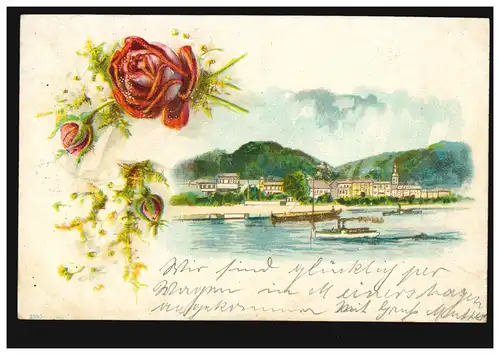 Wir sind glücklich per
Wagen in Meinershagen
angekommen Mit Gruß